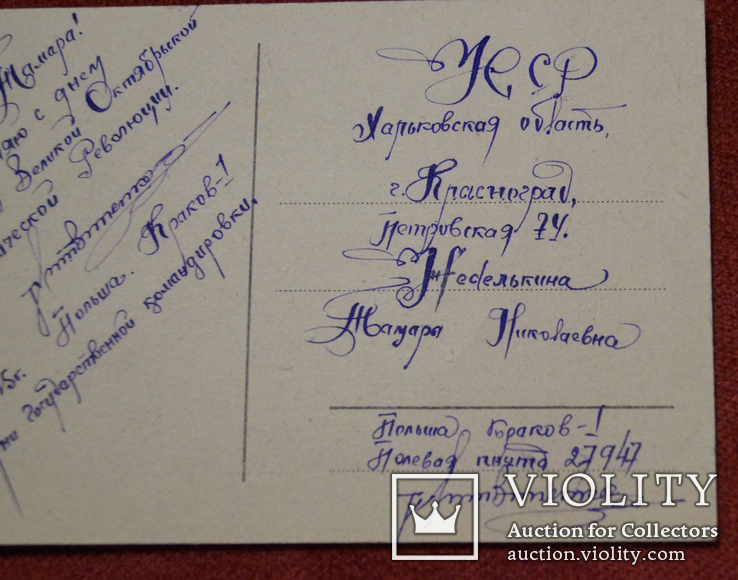 Тамара!
с днем
Великой Октябрьской
Революции.
Польша. Краков-1
государственной командировки.
5г.
УССР
Харьковская область,
г. Красноград,
Петровская 74.
Неделькина
Тамара Николаевна
Польша Краков-1
Полевая почта 27947
VIOLITY
Auction for Collectors
auction.violity.com